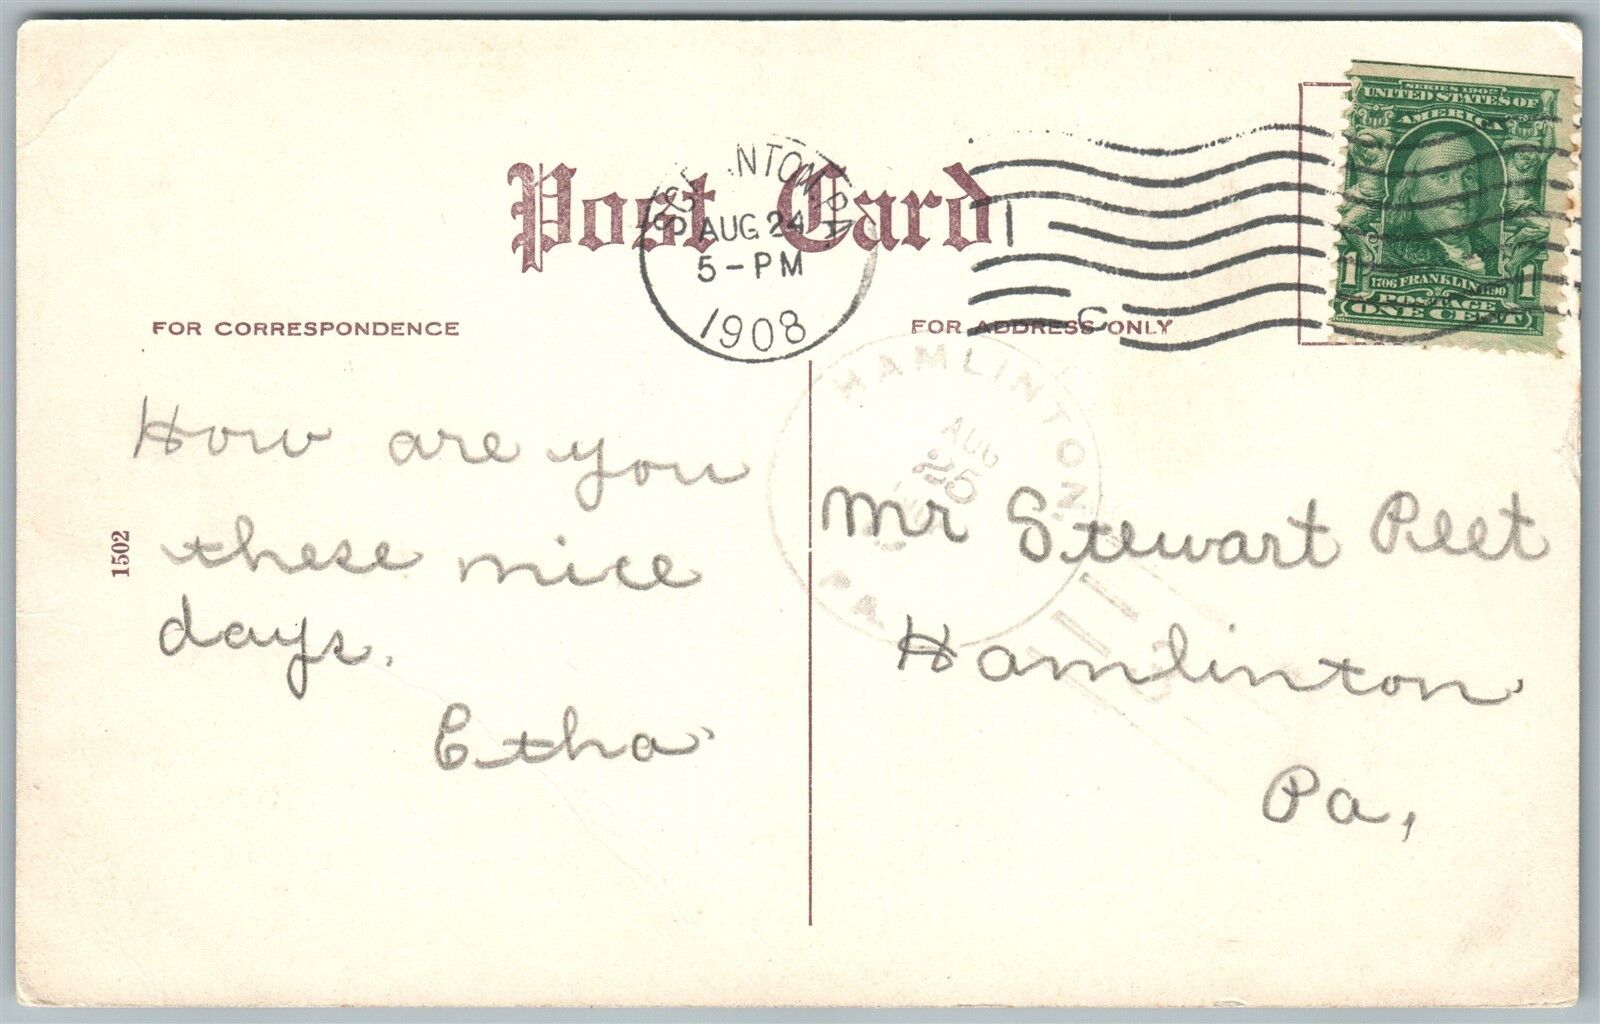 Post Card
NTON, PA
AUG 24
5-PM
1908
SERIES 1902
UNITED STATES OF
AMERICA
1706 FRANKLIN 1790
1 1
POSTAGE
ONE CENT
FOR CORRESPONDENCE
FOR ADDRESS ONLY
C
HAMLINTON
AUG
25
PA.
1502
How are you
these nice
days.
Etha
Mr Stewart Peet
Hamlinton
Pa,